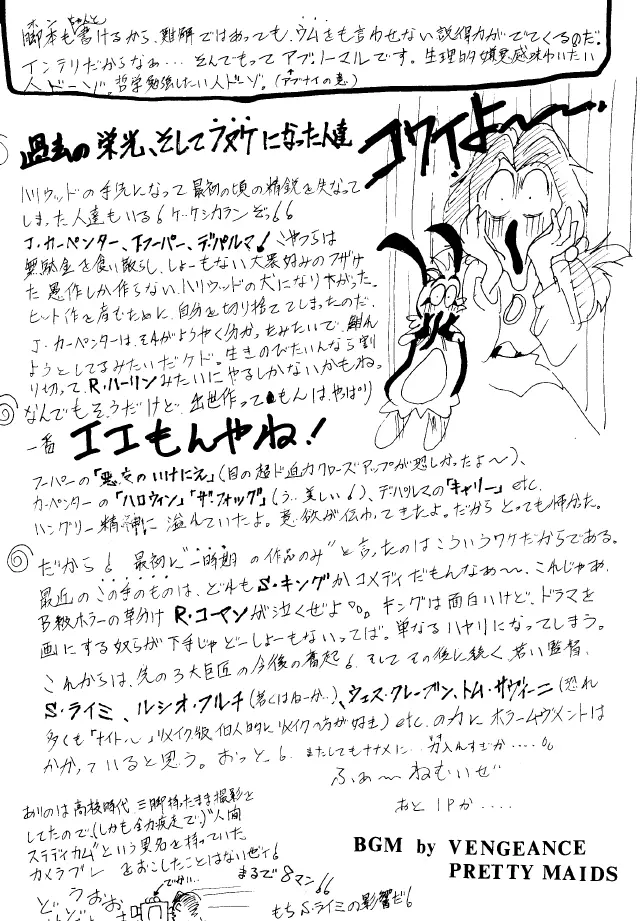 ホン ちゃんと
脚本も書けるから、難解ではあっても、ウムをも言わせない説得力がでてくるのだ。
インテリだからなぁ…そんでもってアブノーマルです。生理的嫌悪感味わいたい
人ドーゾ。哲学勉強したい人ドーゾ。(アブナイの意)
コワイよ〜〜・
過去の栄光、そしてフヌケになった人達
ハリウッドの手先になって最初の頃の精鋭を失なって
しまった人達もいる!ケッケシカランぞっ!!
J・カーペンター、T・フーパー、デパルマ!こやつらは
無駄金を食い散らし、しょーもない大衆好みのフザけ
た悪作しか作らない、ハリウッドの犬になり下がった。
ヒット作を産むために、自分を切り捨ててしまったのだ。
J・カーペンターは、それがようやく分かったみたいで、
ようとしてるみたいだケド。生きのびたいんなら割
り切って R・ハーリンみたいにやるしかないかもねっ
なんでもそうだけど、出世作ってもんは、やっぱり
一番 エエもんやね!
フーパーの「悪魔のいけにえ」(目の超ド迫力クローズアップが恐しかったよ〜)、
カーペンターの「ハロウィン」「ザ・フォッグ」(う…美しい!)、デパルマの「キャリー」etc.
ハングリー精神に溢れていたよ。意欲が伝わってきたよ。だからとっても怖かった。
だから!最初に"一時期の作品のみ"と言ったのはこういうワケだからである。
最近のこの手のものは、どれもS・キングかコメディだもんなぁ〜、これじゃあ、
B級ホラーの草分け R・コーマンが泣くぜよ。。キングは面白いけど、ドラマを
画にする奴らが下手じゃどーしょーもないってば。単なるハヤリになってしまう。
これからは、先の3大巨匠の今後の奮起!、そしてその後に続く、若い監督、
S・ライミ、ルシオ・フルチ(若くはねーか…)、ウェス・クレーブン、トム・サヴィーニ(恐れ
多くも「ナイト・〜」リメイク版 個人的にリメイクの方が好き) etc.の力にホラームーヴメントは
かかっていると思う。おっと!またしてもナナメに…力入んすぎか…・。。
ふぁ〜ねむいぜ
あと1Pか….
ありのは高校時代、三脚持ったまま撮影を
してたので、(しかも全力疾走で)"人間
ステディカム"という異名を持っていた
カメラブレをおこしたことはないゼイ!
でゃ〜 まるで8マン!!
どうおお
もちS・ライミの影響だ!
BGM by VENGEANCE
PRETTY MAIDS